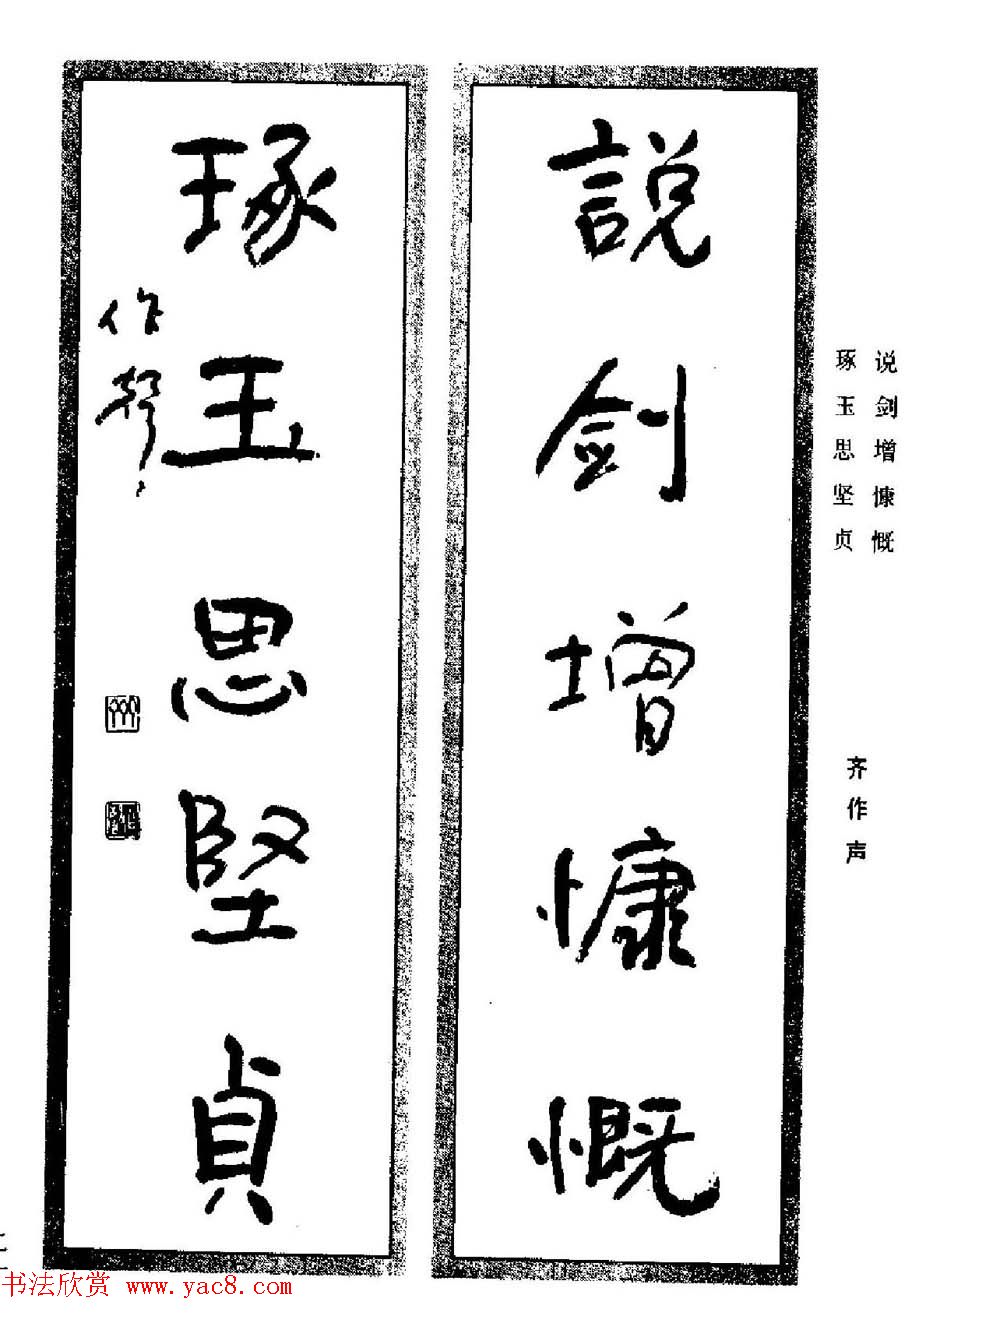 説劍增慷慨
琢玉思堅貞
作聲
说剑增慷慨
琢玉思坚贞
齐作声
书法欣赏 www.yac8.com